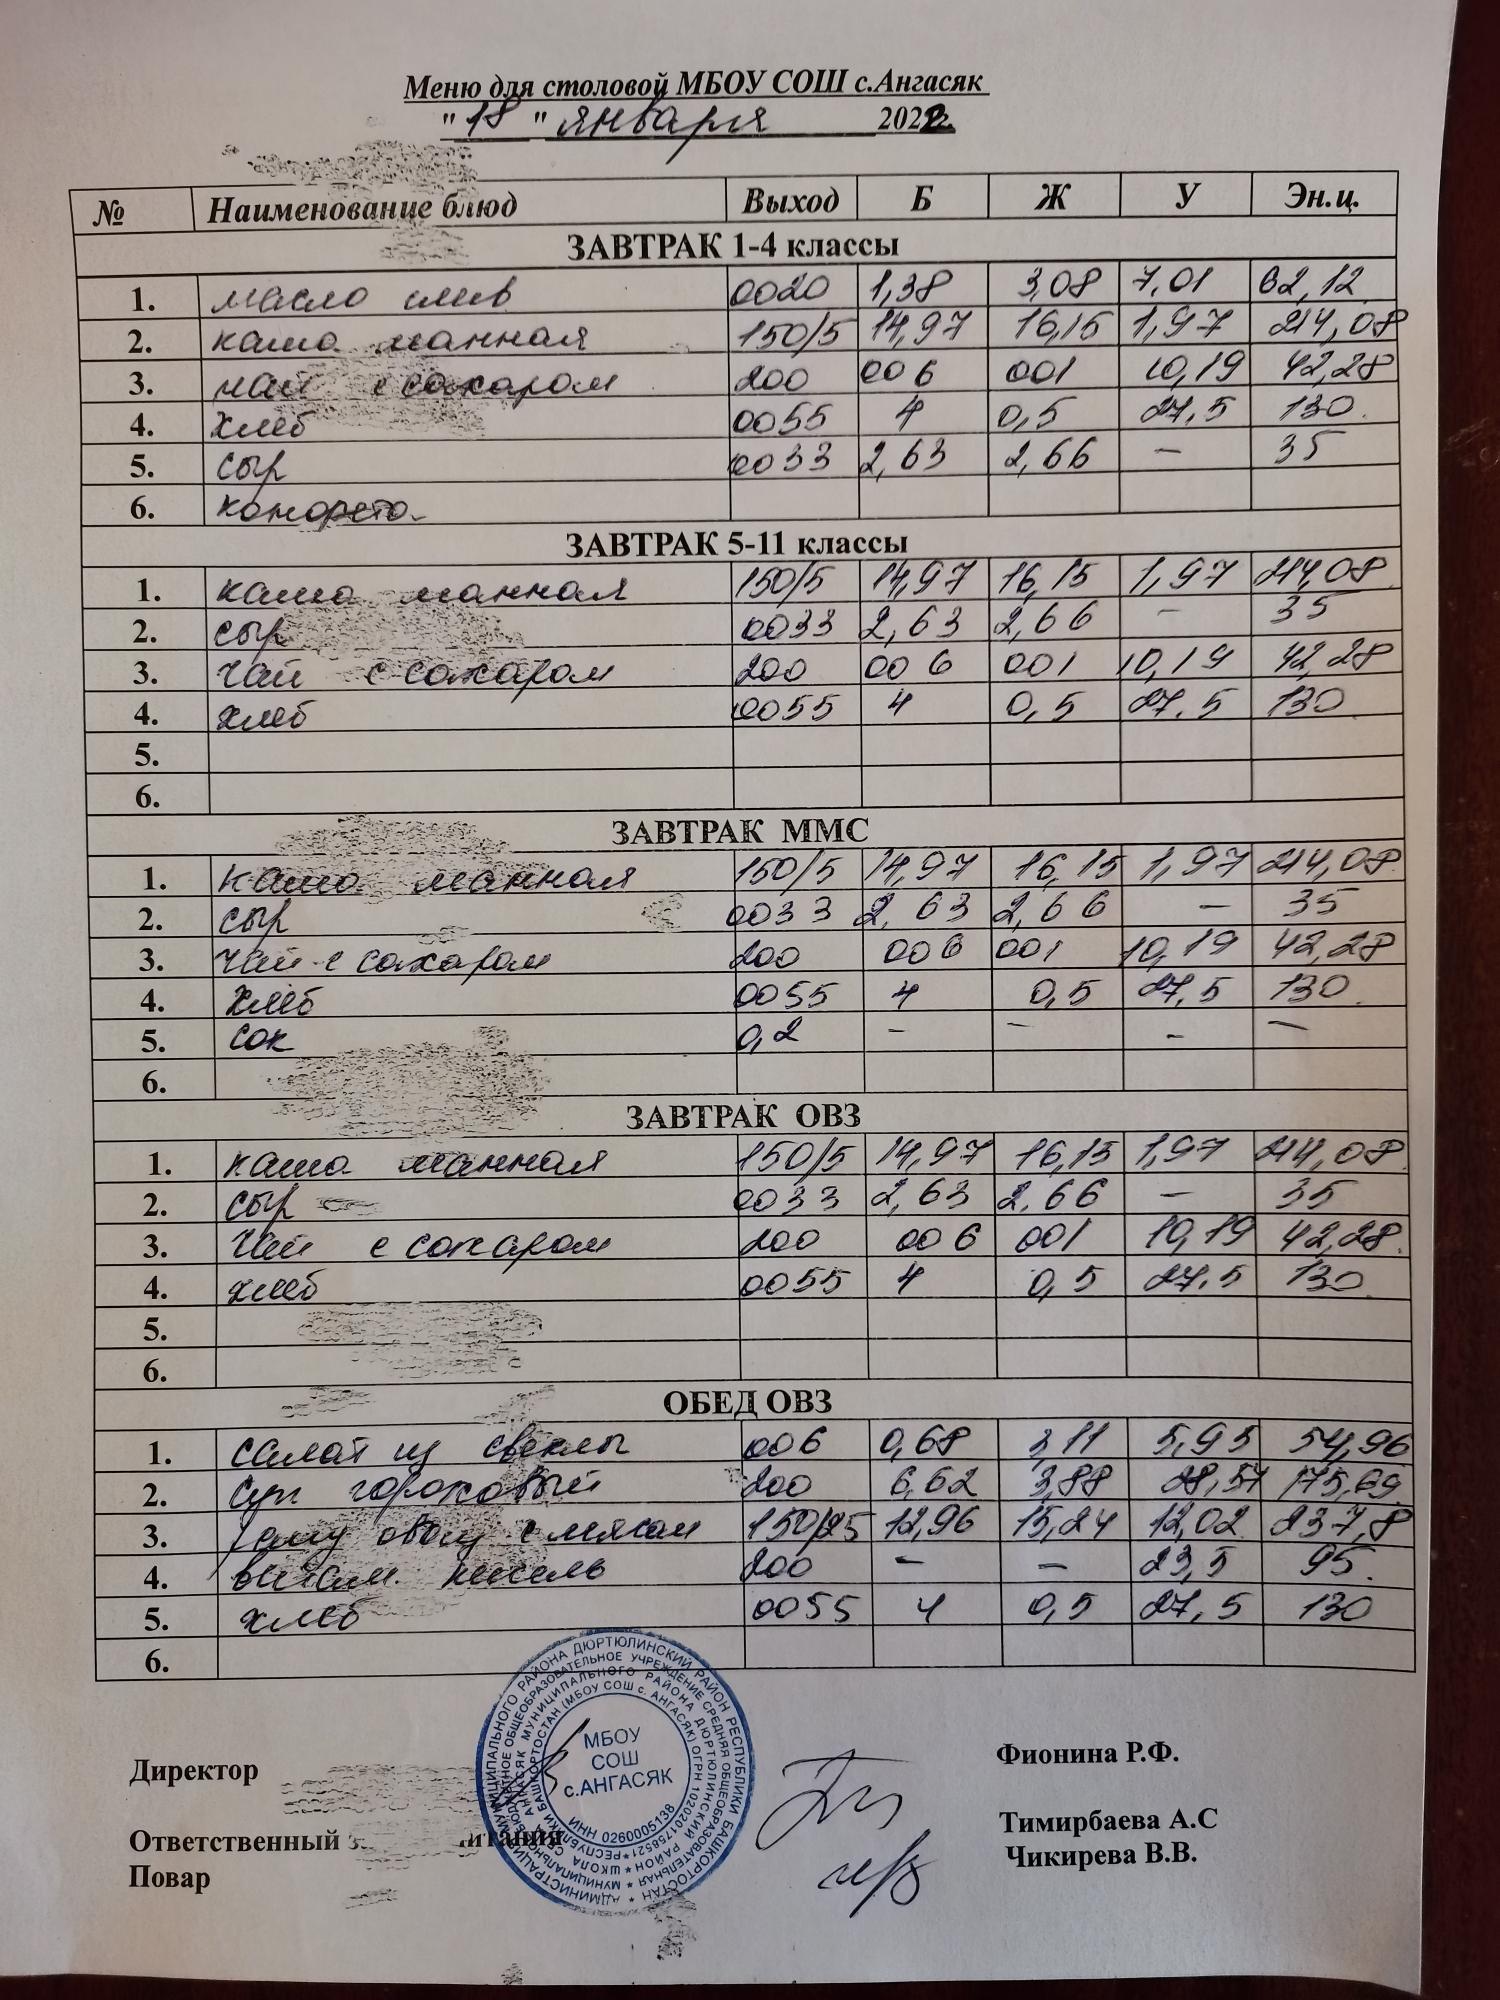 Меню для столовой МБОУ СОШ с.Ангасяк
"18" января 2022г.
№ Наименование блюд Выход Б Ж У Эн.ц.
ЗАВТРАК 1-4 классы
1. масло слив 0020 1,38 3,08 7,01 62,12
2. каша манная 150/5 14,97 16,15 1,97 214,08
3. чай с сахаром 200 006 001 10,19 42,28
4. хлеб 0055 4 0,5 27,5 130
5. сыр 0033 2,63 2,66 – 35
6. конфета
ЗАВТРАК 5-11 классы
1. каша манная 150/5 14,97 16,15 1,97 214,08
2. сыр 0033 2,63 2,66 – 35
3. чай с сахаром 200 006 001 10,19 42,28
4. хлеб 0055 4 0,5 27,5 130
5.
6.
ЗАВТРАК ММС
1. каша манная 150/5 14,97 16,15 1,97 214,08
2. сыр 0033 2,63 2,66 – 35
3. чай с сахаром 200 006 001 10,19 42,28
4. хлеб 0055 4 0,5 27,5 130
5. сок 0,2 – – – –
6.
ЗАВТРАК ОВЗ
1. каша манная 150/5 14,97 16,15 1,97 214,08
2. сыр 0033 2,63 2,66 – 35
3. чай с сахаром 200 006 001 10,19 42,28
4. хлеб 0055 4 0,5 27,5 130
5.
6.
ОБЕД ОВЗ
1. салат из свеклы 006 0,68 3,11 5,95 54,96
2. суп гороховый 200 6,62 3,88 28,57 175,69
3. овощ с мясом 150/25 12,96 15,24 12,02 237,8
4. витам. кисель 200 – – 23,5 95
5. хлеб 0055 4 0,5 27,5 130
6.
Директор Фионина Р.Ф.
Ответственный Тимирбаева А.С
Повар Чикирева В.В.
МБОУ
СОШ
с.АНГАСЯК
ИНН 0260005138